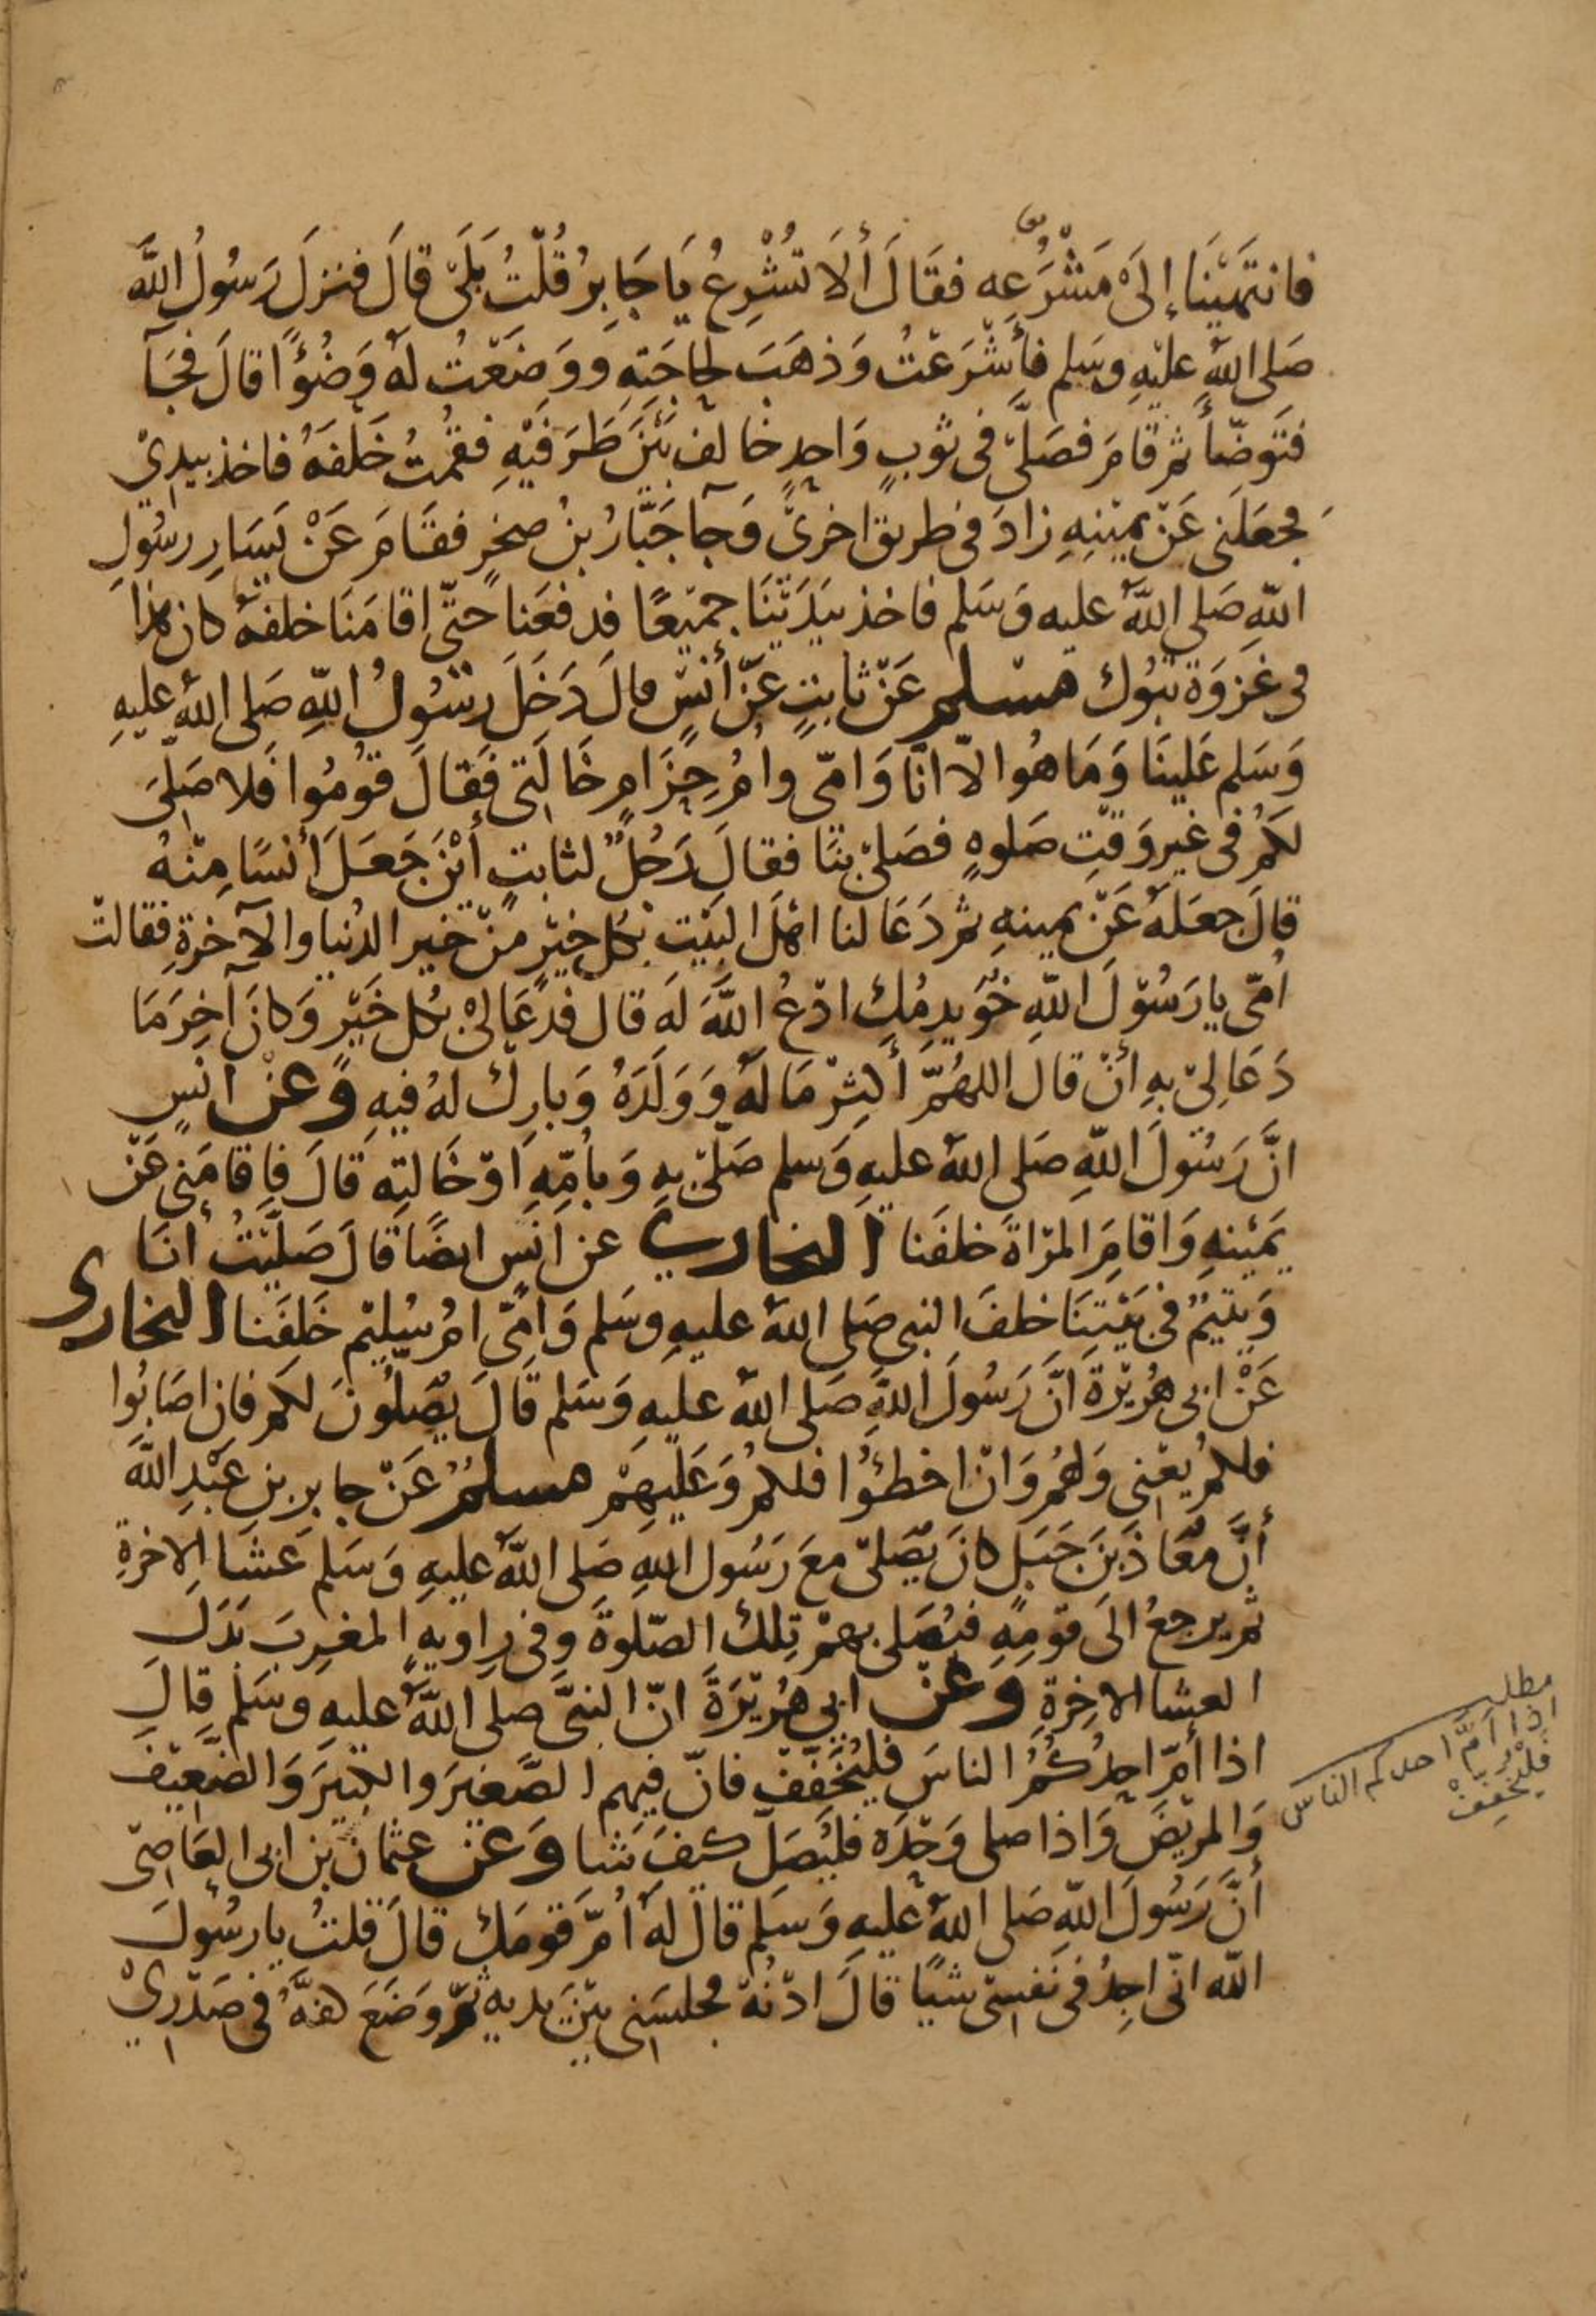 فانتَهَيْنَا إلَىْ مَشْرَُعِه فقَالَ أَلَا تُشْرِعُ يَا جَابِرُ قُلْتُ بَلَىْ قالَ فنزلَ رَسُولُ اللَّه
صَلى اللهُ عليْهِ وسَلم فأَشْرَعْتُ وَذهَبَ لِحَاجَتِهِ ووَضَعْتُ لهُ وَضُوًا قالَ فجَآ
فتَوضّأ ثم قامَ فصَلّى فى ثوبٍ وَاحِدٍ خالف بَيْنَ طَرَفَيْهِ فقمْتُ خَلْفَهُ فاخذ بيدِىْ
فجعَلَنى عَنْ يمِيْنِهِ زادَ فى طريق اخرىْ وَجآ جَبَّارُ بنُ صخرٍ فقَامَ عَنْ يَسَارِ رسُولِ
اللّهِ صَلى اللّهُ عليه وَسَلم فاخذ بيَدَيْنَا جميْعًا فدفعَنا حتّى اقامَنَا خلفهُ كان هذا
فى غزوَة تَبُوك مسْلم عَنْ ثابتٍ عَنْ أَنَسٍ قالَ دَخَلَ رسُولُ اللّهِ صَلى اللهُ عليهِ
وَسَلم عَلينَا وَمَا هُوا لاّ انَا وَامّى وامُ حِزَامٍ خَالَتِى فَقالَ قوُمُوا فَلا صَلىَ
لكُمْ فى غيرِ وَقتِ صَلوهٍ فصَلىّ بنَا فقالَ رَجُلٌ لثابتٍ أيْنَ جَعَلَ أنسًا مِنْهُ
قالَ جعَلهُ عَنْ يمينهِ ثمّ دَعَا لنا اهْلَ البَيْت بكل خيْرٍ منْ خير الدُنيا والآخرةِ فقالتْ
اُمّى يا رَسُوْلَ اللّهِ خُوَيدِمُكِ ادْعُ اللَّهَ لهَ قال فدعَا لىْ بكل خَيْرٍ وَكانَ آخِرَ مَا
دَعَا لِيْ بهِ أنْ قال اللهُمّ أكثِرْ مَا لهُ وَوَلَدَهُ وَبارِكْ لهُ فيهِ وَعنْ انسٍ
انَّ رَسُولَ اللّهِ صَلى اللهُ عليهِ وَسلم صَلّىْ بهِ وَبأمِّهِ اَوْ خَالتِه قالَ فاقامَنِى عَنْ
يَميْنهِ وَاقامَ المرْاةَ خلفَنا البخارى عن اَنَسٍ ايضًا قالَ صَليْتُ أنَا
وَيتيْمٌ فى بَيْتِنَا خلفَ النبى صَلى اللهُ عليهِ وسَلم وَامّى امُ سُليْم خَلفَنا البخارى
عَنْ ابى هُرَيْرَةَ انَّ رَسُولَ اللّهِ صَلى اللهُ عليهِ وَسَلم قالَ يُصَلُّونَ لكم فان اصَابُوا
فلكمْ يعْنى وَلهمُ وَانْ اخطئوُا فلكمْ وَعَليهِمْ مسلمٌ عَنْ جابر بن عَبْدِ اللَّه
أنَّ مُعَاذَ بَنَ جَبَلٍ كانَ يُصَلىّ معَ رَسُول اللهِ صَلى اللهُ عليهِ وَسَلم عَشَا الاخرةِ
ثم يرجعُ الَى قومِهِ فيُصَلى بهمْ تِلكَ الصّلوةَ وفى راويهٍ المغرِبَ بَدَلَ
العشا الاخِرَةِ وَعَنْ ابي هُرَيْرَةَ انّ النبىَّ صلى اللهُ عليهِ وسَلم قالَ
اذا أمّ احدُكُمُ الناسَ فليُخَفّفْ فانّ فيهم الصَّغيرَ والكبيَر وَالضَّعِيْفَ
وَالمريْضَ وَاذا صلى وَحْدَه فليُصَلّ كيفَ شا وَعَن عثمانَ بن ابى العَاصِىْ
أنَّ رَسُولَ اللّهِ صَلى اللهُ عليهِ وَسَلم قالَ لهُ اُمّ قومَك قالَ قلتُ يا رسُولَ
اللّه انّى اجِدُ فى نَفسِى شيًا قالَ ادْنُهْ فجلسَنى بيْنَ يديهِ ثمّ وَضَعَ كفَّهُ فى صَدْرِيْ
مطلب
اذا أمّ احدكم الناس
فليْخففْ